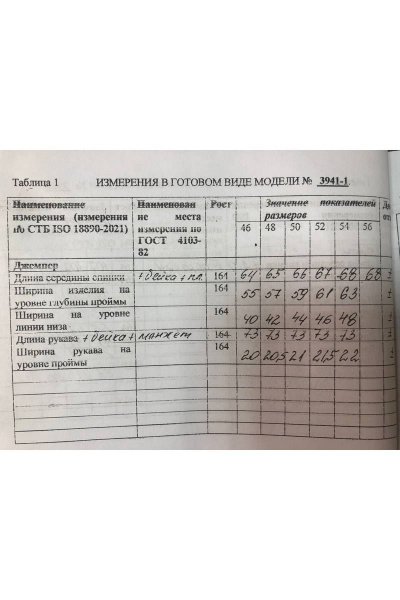 Таблица 1 ИЗМЕРЕНИЯ В ГОТОВОМ ВИДЕ МОДЕЛИ № 3941-1
Наименование измерения (измерения по СТБ ISO 18890-2021) Наименован ие места измерения по ГОСТ 4103-82 Рост Значение показателей размеров До
46 48 50 52 54 56
Джемпер
Длина середины спинки + бейка + пл. 164 64 65 66 67 68 68 ±
Ширина изделия на уровне глубины проймы 164 55 57 59 61 63 ±
Ширина на уровне линии низа 164 40 42 44 46 48 ±
Длина рукава + бейка + манжет 164 73 73 73 73 73 ±
Ширина рукава на уровне проймы 164 20 20,5 21 21,5 22 ±